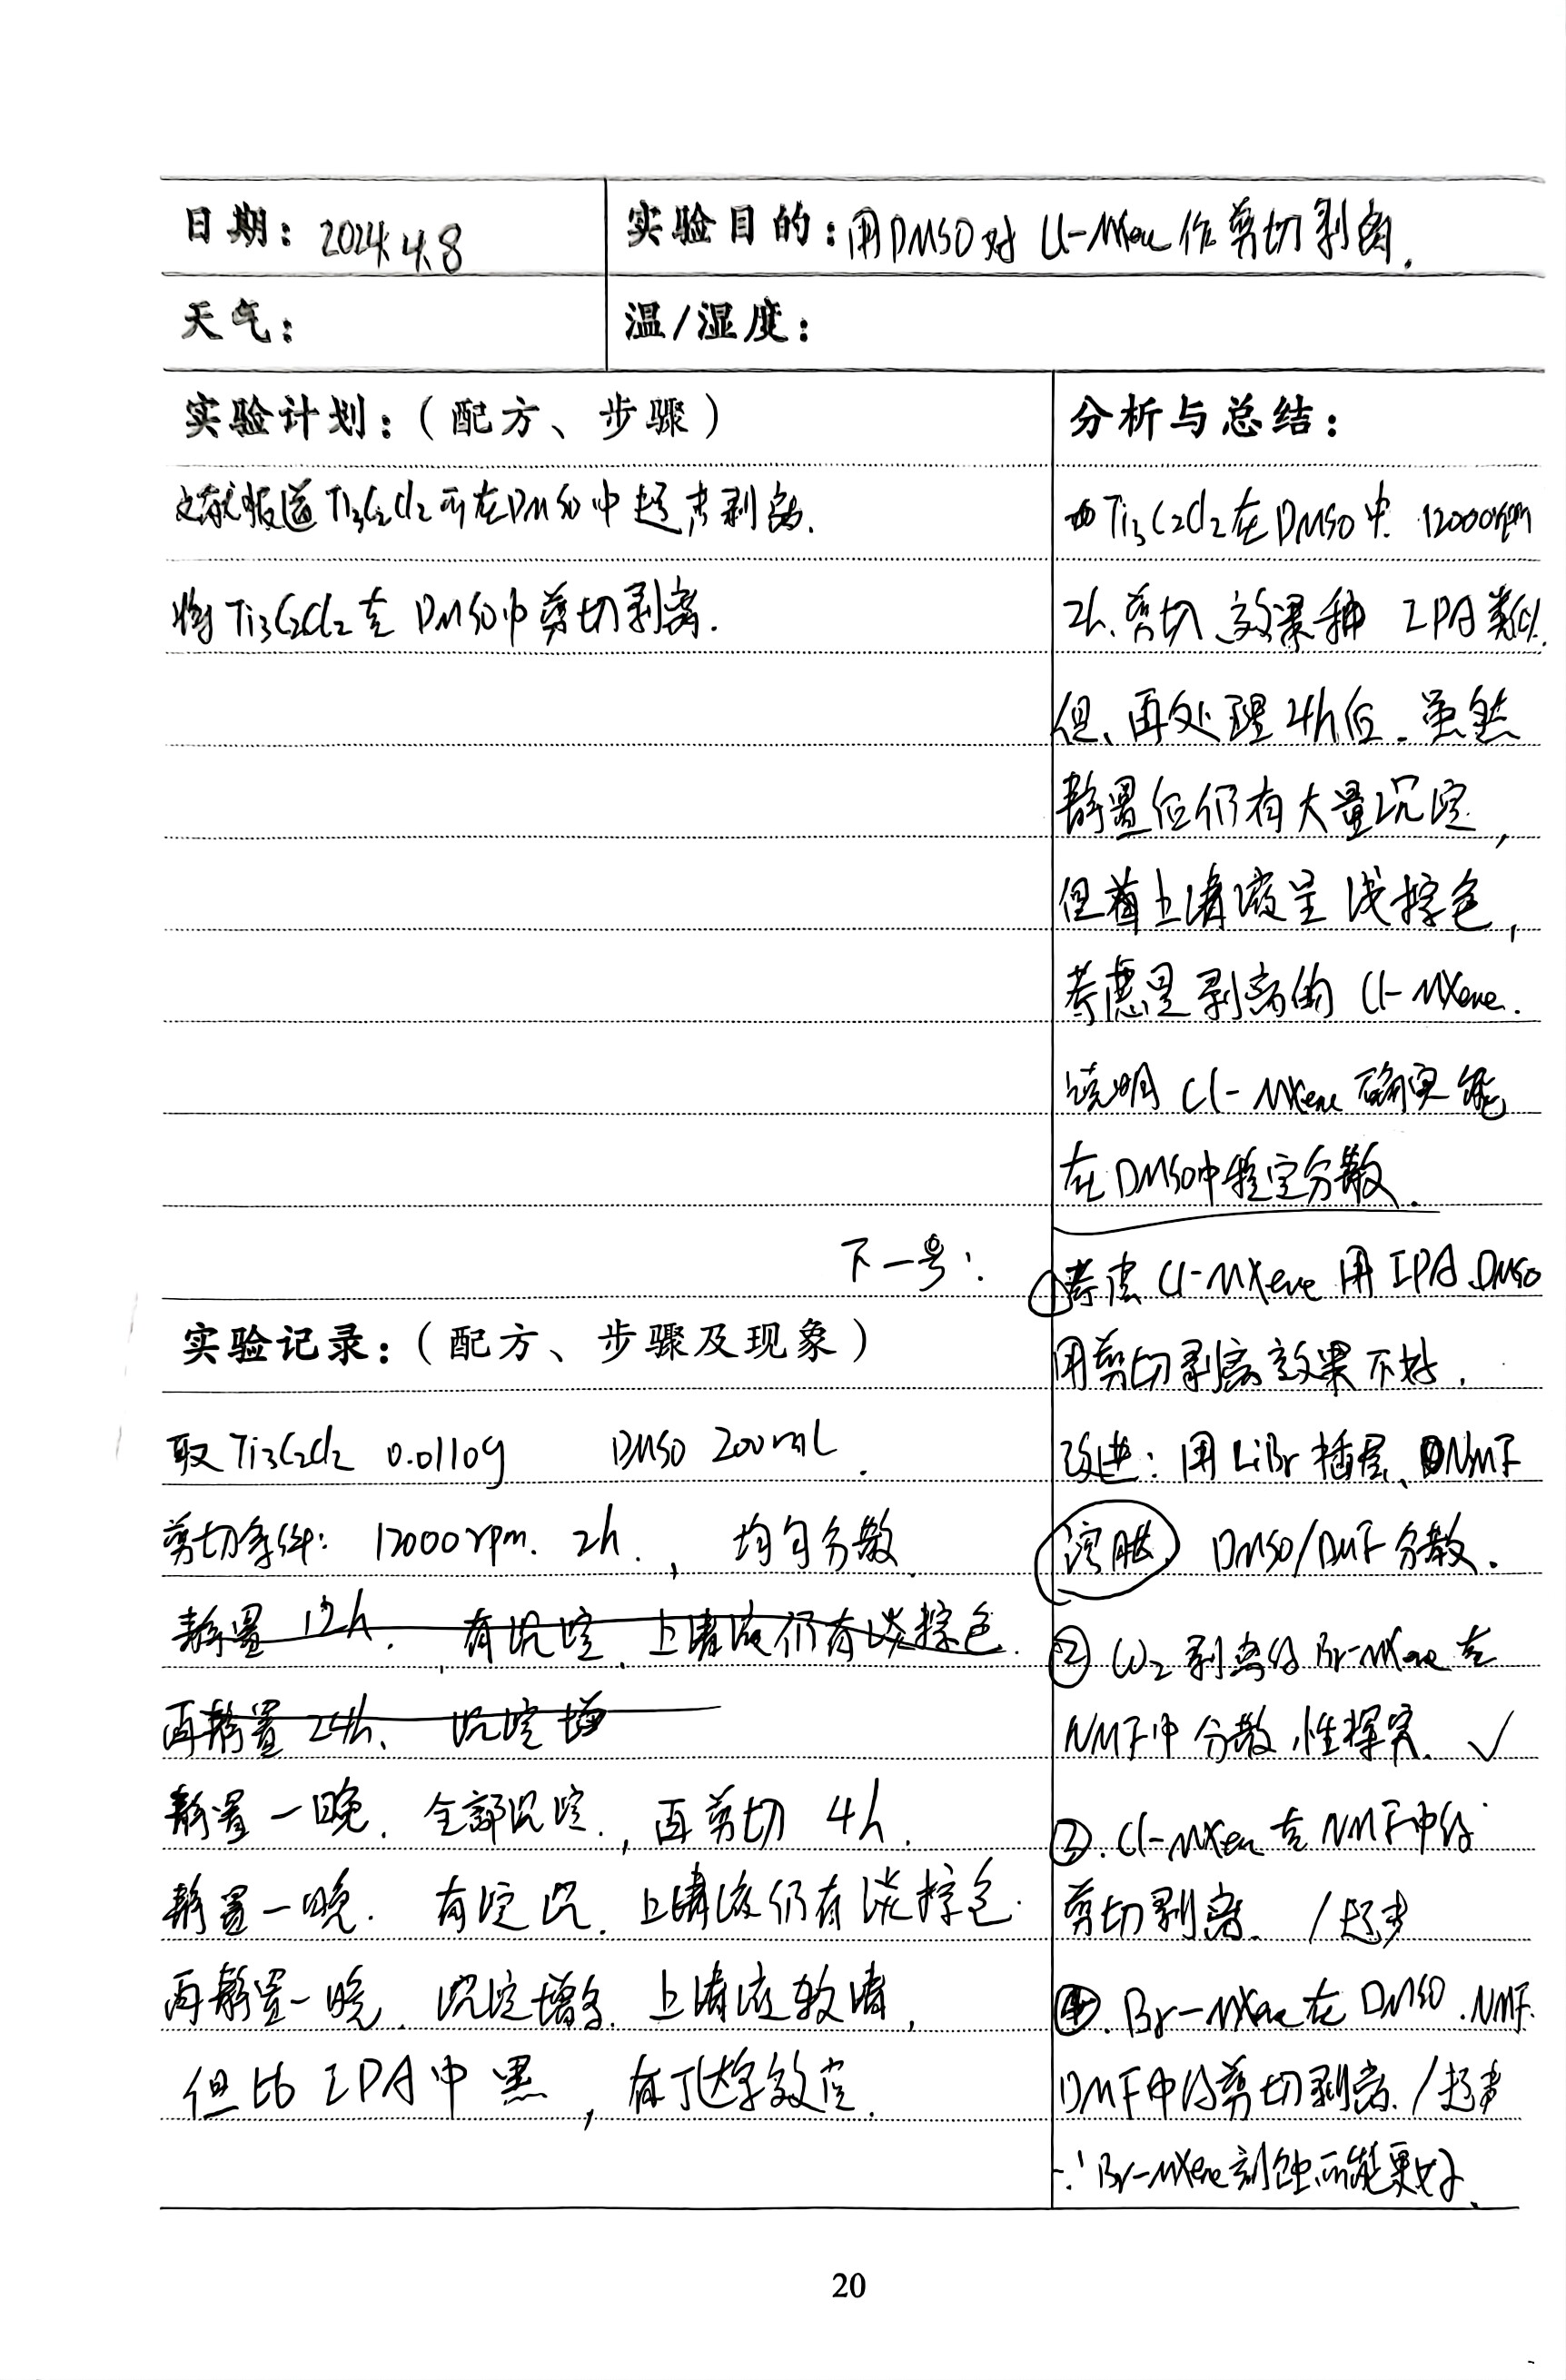 日期：2024.4.8
实验目的：用DMSO对Cl-MXene作剪切剥离.
天气：
温/湿度：
实验计划：（配方、步骤）
文献报道Ti3C2Cl2可在DMSO中超声剥离.
将Ti3C2Cl2在DMSO中剪切剥离.
下一号：
实验记录：（配方、步骤及现象）
取Ti3C2Cl2 0.0110g DMSO 200mL.
剪切条件: 12000rpm. 2h., 均匀分散
静置12h. 有沉淀. 上清液仍有淡棕色.
再静置24h. 沉淀增
静置一晚. 全部沉淀., 再剪切 4h.
静置一晚. 有淀沉. 上清液仍有淡棕色.
再静置一晚. 沉淀增多. 上清液较清,
但比IPA中黑, 有丁达尔效应.
分析与总结：
Ti3C2Cl2在DMSO中. 12000rpm
2h.剪切 效果和 IPA类似.
但、再处理4h后. 虽然
静置后仍有大量沉淀,
但 上清液呈浅棕色,
考虑是剥离的 Cl-MXene.
说明 Cl-MXene 确实能
在DMSO中稳定分散.
①考虑 Cl-MXene 用 IPA、DMSO
用剪切剥离效果不好.
改进: 用LiBr插层、NMF
溶胀. DMSO/DMF分散.
② 剥离的Br-MXene在
NMF中分散性探究. ✓
③. Cl-MXene在NMF中的
剪切剥离. /超声
④. Br-MXene在DMSO.NMF.
DMF中的剪切剥离./超声
∵Br-MXene刻蚀可能更好.
20